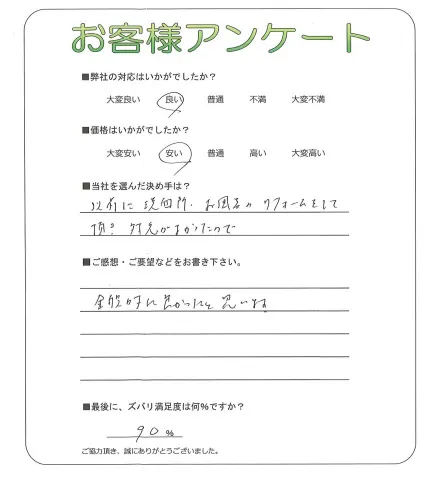 お客様アンケート
■弊社の対応はいかがでしたか？
大変良い 良い 普通 不満 大変不満
■価格はいかがでしたか？
大変安い 安い 普通 高い 大変高い
■当社を選んだ決め手は？
以前に洗面所・お風呂のリフォームをして
頂き 対応がよかったので
■ご感想・ご要望などをお書き下さい。
全般的に良かったと思います
■最後に、ズバリ満足度は何％ですか？
90％
ご協力頂き、誠にありがとうございました。